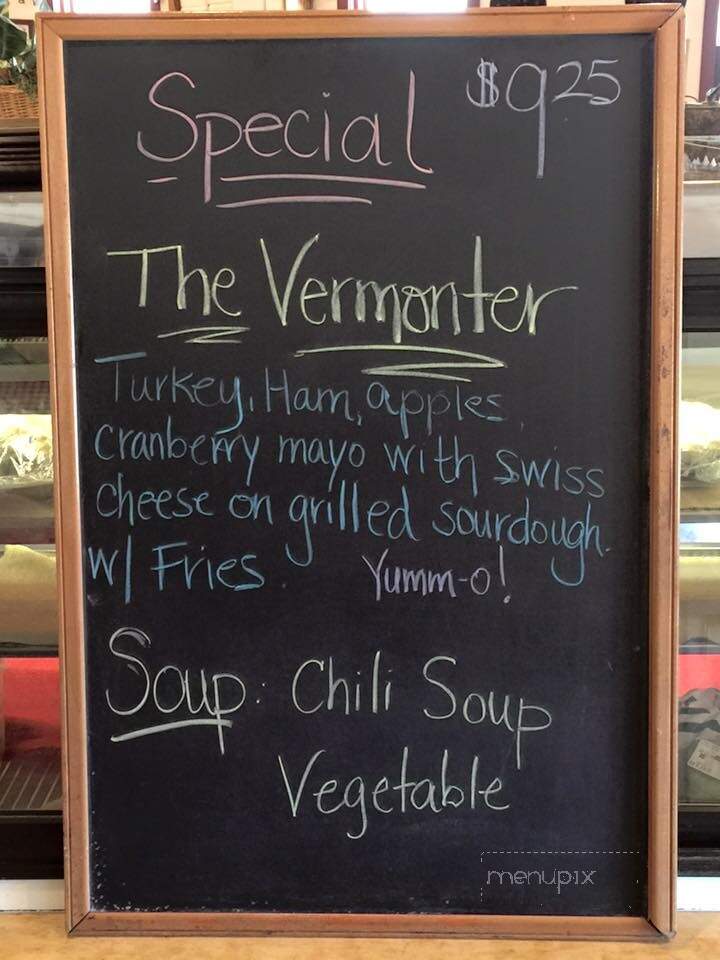 Special $9.25
The Vermonter
Turkey, Ham, apples,
cranberry mayo with swiss
cheese on grilled sourdough.
w/ Fries. Yumm-o!
Soup: Chili Soup
Vegetable
menupix